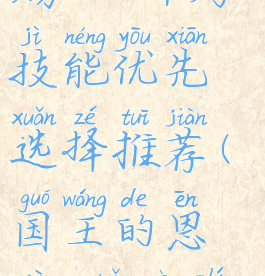 jì néng yōu xiān
技能优先
xuǎn zé tuī jiàn
选择推荐(
guó wáng de ēn
国王的恩